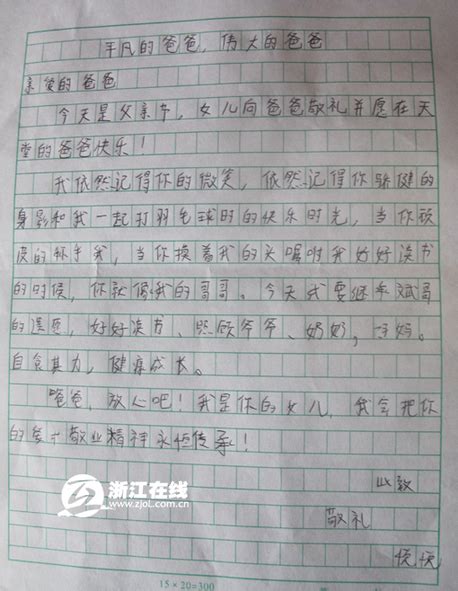 平凡的爸爸，伟大的爸爸
亲爱的爸爸
今天是父亲节，女儿向爸爸敬礼并愿在天
堂的爸爸快乐！
我依然记得你的微笑，依然记得你矫健的
身影和我一起打羽毛球时的快乐时光，当你顽
皮的和我，当你摸着我的头嘱咐我好好读书
的时候，你就像我的哥哥。今天我要继承斌哥
的遗愿，好好读书、照顾爷爷、奶奶，妈妈。
自食其力，健康成长。
爸爸，放心吧！我是你的女儿，我会把你
的爱岗敬业精神永恒传承！
此致
敬礼
悦悦
浙江在线
www.zjol.com.cn
15×20=300